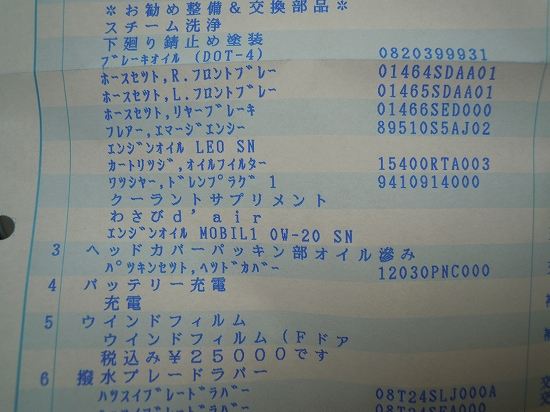 ※お勧め整備&交換部品※
スチーム洗浄
下廻り錆止め塗装
ﾌﾞﾚｰｷｵｲﾙ (DOT-4) 0820399931
ﾎｰｽｾﾂﾄ,R.ﾌﾛﾝﾄﾌﾞﾚｰ 01464SDAA01
ﾎｰｽｾﾂﾄ,L.ﾌﾛﾝﾄﾌﾞﾚｰ 01465SDAA01
ﾎｰｽｾﾂﾄ,ﾘﾔｰﾌﾞﾚｰｷ 01466SED000
ﾌﾚｱｰ,ｴﾏｰｼﾞｴﾝｼｰ 89510S5AJ02
ｴﾝｼﾞﾝｵｲﾙ LEO SN
ｶｰﾄﾘﾂｼﾞ,ｵｲﾙﾌｲﾙﾀｰ 15400RTA003
ﾜﾂｼﾔｰ,ﾄﾞﾚﾝﾌﾟﾗｸﾞ 1 9410914000
クーラントサプリメント
わさびd'air
ｴﾝｼﾞﾝｵｲﾙ MOBIL1 0W-20 SN
3 ヘッドカバーパッキン部オイル滲み
ﾊﾟﾂｷﾝｾﾂﾄ,ﾍﾂﾄﾞｶﾊﾞｰ 12030PNC000
4 バッテリー充電
充電
5 ウインドフィルム
ウインドフィルム(Fドア
税込み¥25000です
6 撥水ブレードラバー
ﾊﾂｽｲﾌﾞﾚｰﾄﾞﾗﾊﾞｰ 08T24SLJ000A